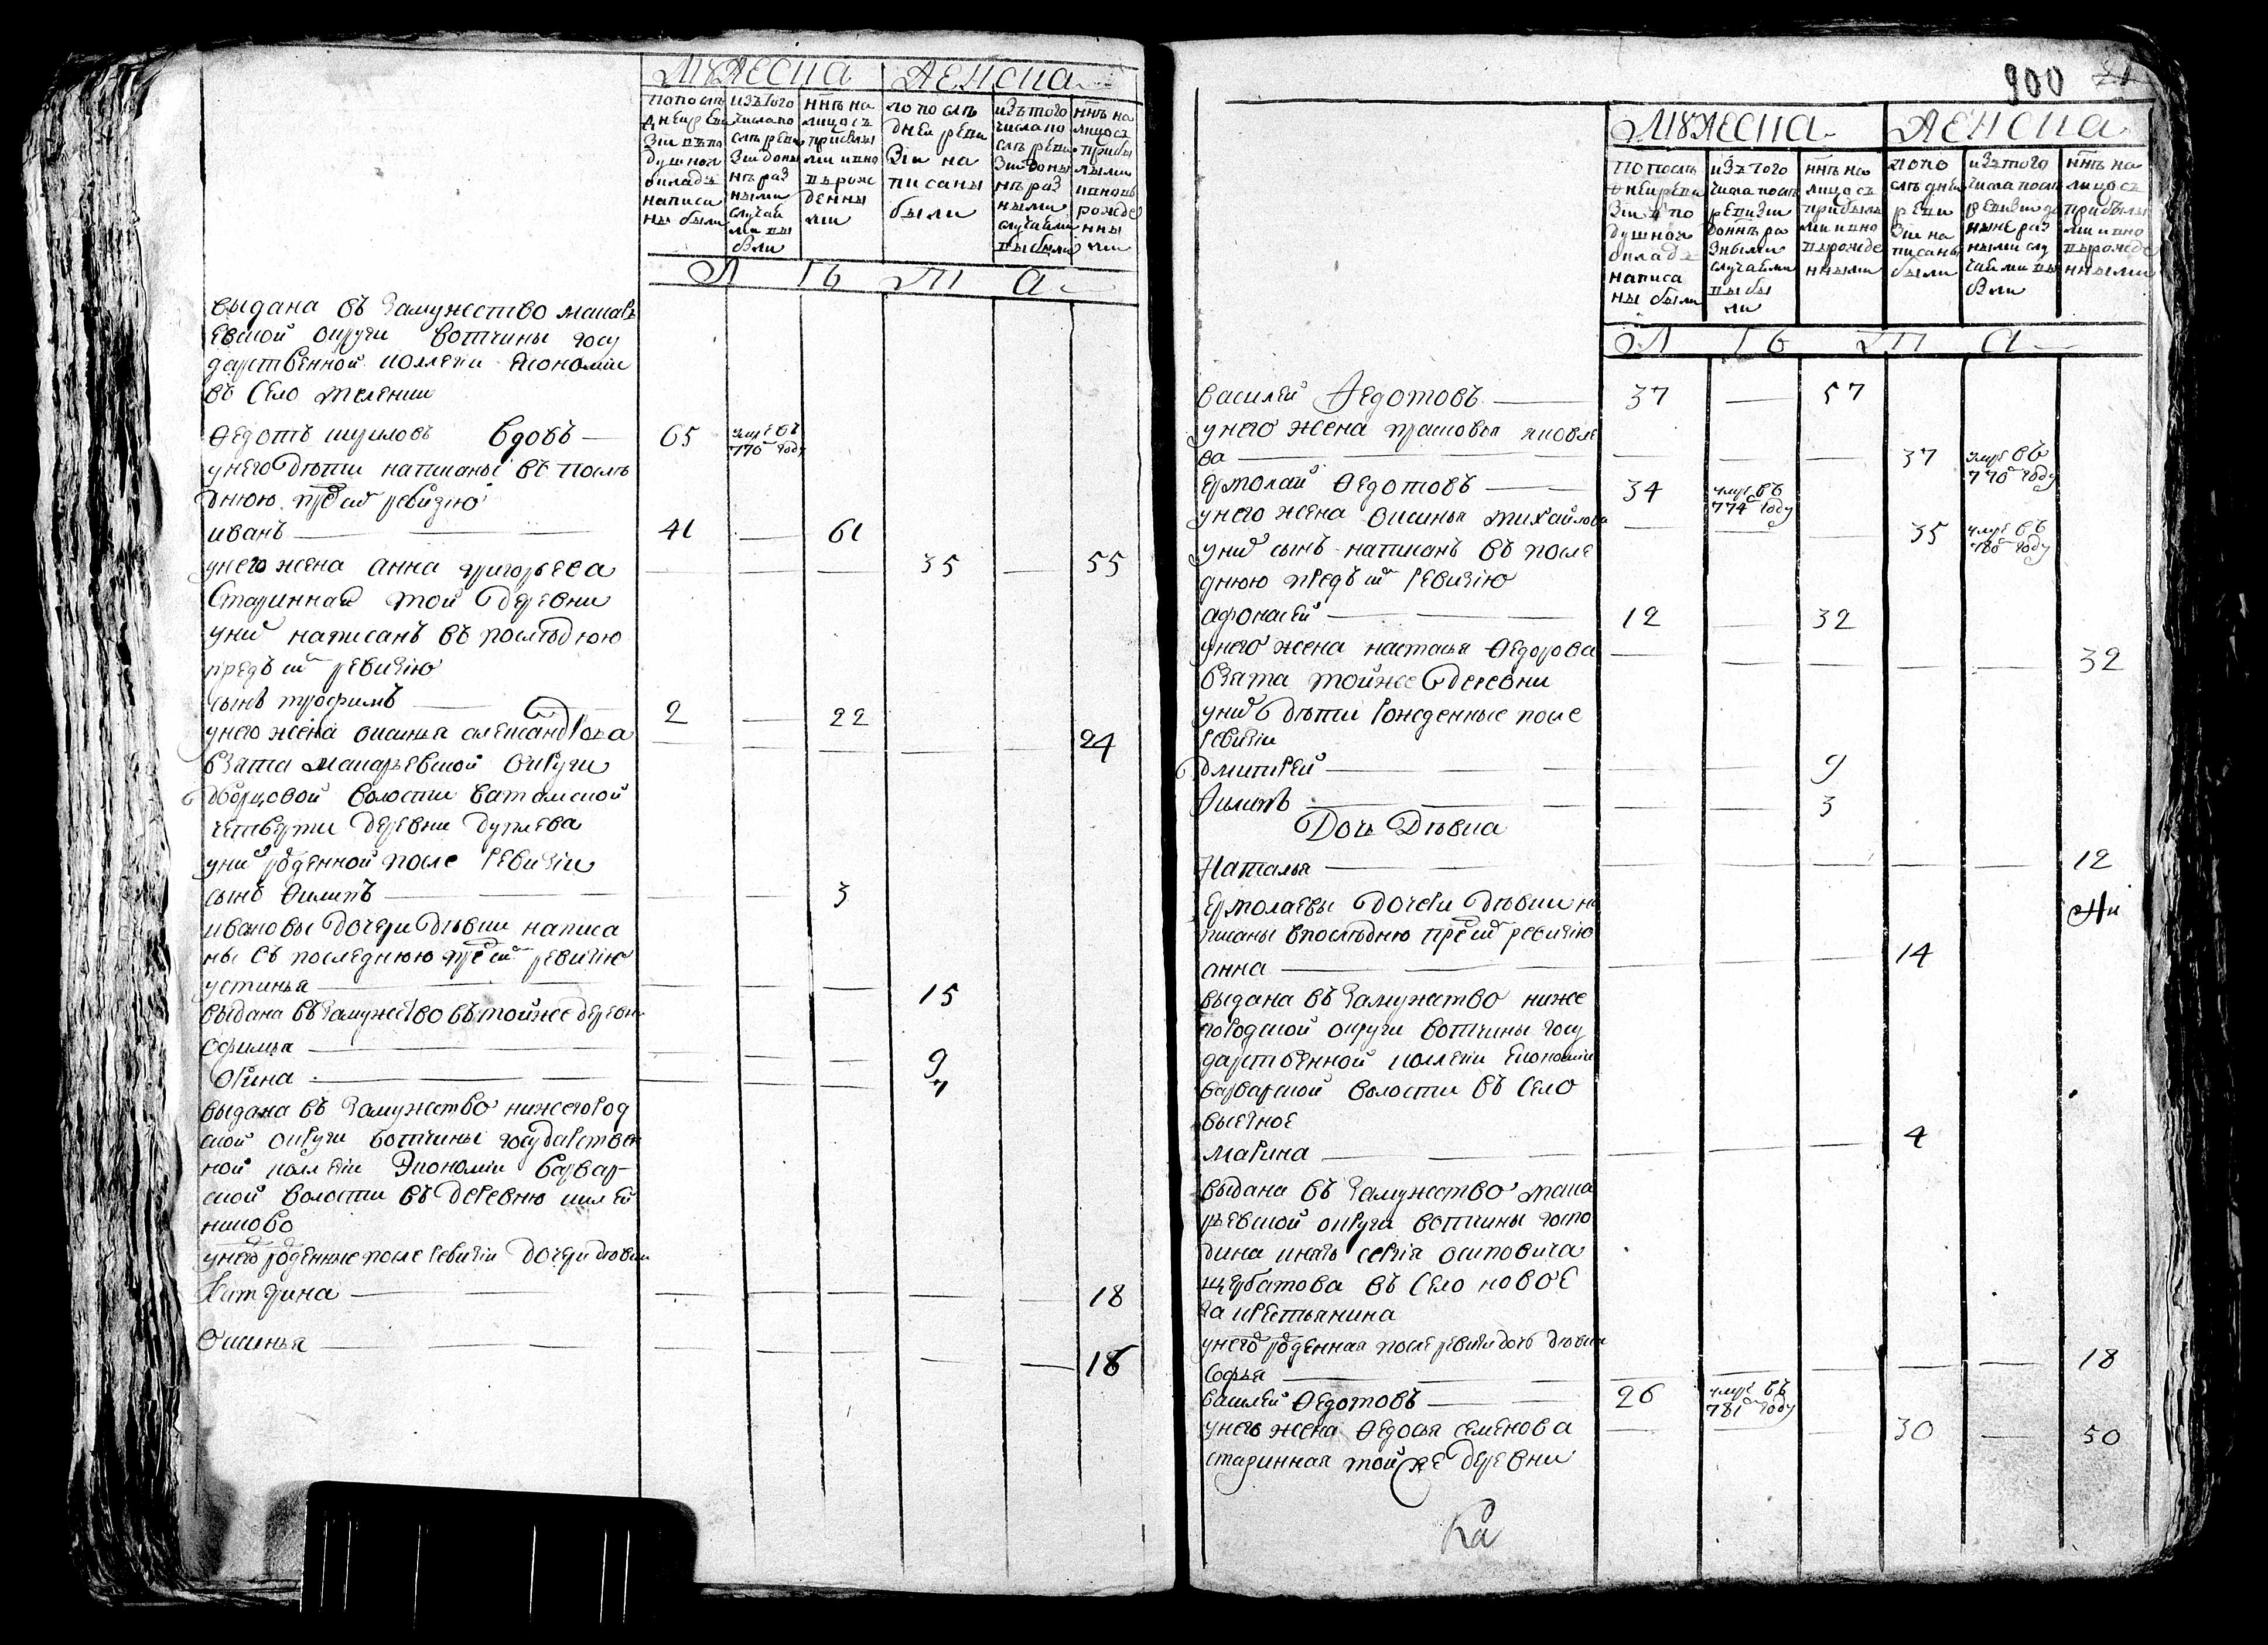 МУЖЕСКА ЖЕНСКА
по послѣ
дней реви
зіи въ по
душной
окладъ
написа
ны были
изъ того
числа по
слѣ реви
зіи доны
нѣ раз
ными
случаи
ми вы
были
ннѣ на
лицо съ
прибылы
ми и вно
въ рож
денны
ми
по послѣ
дней реви
зіи на
писаны
были
изъ того
числа по
слѣ реви
зіи доны
нѣ раз
ными
случаями
выбыли
ннѣ на
лицо съ
прибы
лыми
и вновь
рожде
нны
ми
Л Ѣ Т А
выдана въ замужество макарь
евской округи вотчины госу
дарственной коллегіи экономіи
въ село
Ѳедотъ шуиловъ вдовъ 65 умре въ 770м году
у него дѣти написаны въ послѣ
днюю пред сим ревизію
иванъ 41 61
у него жена анна григорьева 35 55
старинная той деревни
у них написанъ въ последнюю
предъ сим ревизію
сынъ трофимъ 2 22
у него жена оксинья александрова 24
взята макарьевской округи
дворцовой волости ватомской
четверти деревни
у них рожденной после ревизіи
сынъ Ѳилипъ 3
ивановы дочери дѣвки написа
ны въ последнюю пред сим ревизію
устинья 15
выдана въ замужество въ тойже деревне
Офимья 9
Орина 7
выдана въ замужество нижегород
ской округи вотчины государствен
ной коллегіи экономіи варвар
ской волости въ деревню
у него рожденные после ревизіи дочери девки
Катерина 18
Оксинья 16
900 21
МУЖЕСКА ЖЕНСКА
по послѣ
дней реви
зіи в по
душной
окладъ
написа
ны были
изъ того
числа послѣ
ревизіи
доннѣ ра
зными
случаями
выбы
ли
ннѣ на
лицо съ
прибылы
ми и вно
въ рожде
нными
по по
слѣ дней
реви
зіи на
писаны
были
изъ того
числа послѣ
ревизіи до
ныне раз
ными слу
чаими вы
были
ннѣ на
лицо съ
прибылы
ми и вно
въ рожде
нными
Л Ѣ Т А
василей Ѳедотовъ 37 57
у него жена прасковья яковле
ва 37 умре въ 770м году
Ермолай Ѳедотовъ 34 умре въ 774м году
у него жена оксинья михайлова 35 умре въ 780м году
у них сынъ написанъ въ после
днюю предъ сим ревизію
афонасей 12 32
у него жена настасья Ѳедорова 32
взята тойже деревни
у них дѣти рожденные после
ревизіи
дмитрей 9
Ѳилипъ 3
Дочь Дѣвка
Наталья 12
Ермолаевы дочери дѣвки на
писаны впоследнюю пред сим ревизію
анна 14
выдана въ замужство ниже
городской округи вотчины госу
дарственной коллегіи економіи
варварской волости въ село
высечное
марина 4
выдана въ замужество мака
рьевской округи вотчины госпо
дина князь сергія осиповича
щербатова въ село новое
за крестьянина
у него рожденная после ревизіи дочь девка
софья 18
василей Ѳедотовъ 26 умре въ 781м году
у него жена Ѳедосья семенова 30 50
старинная той же деревни
Ка